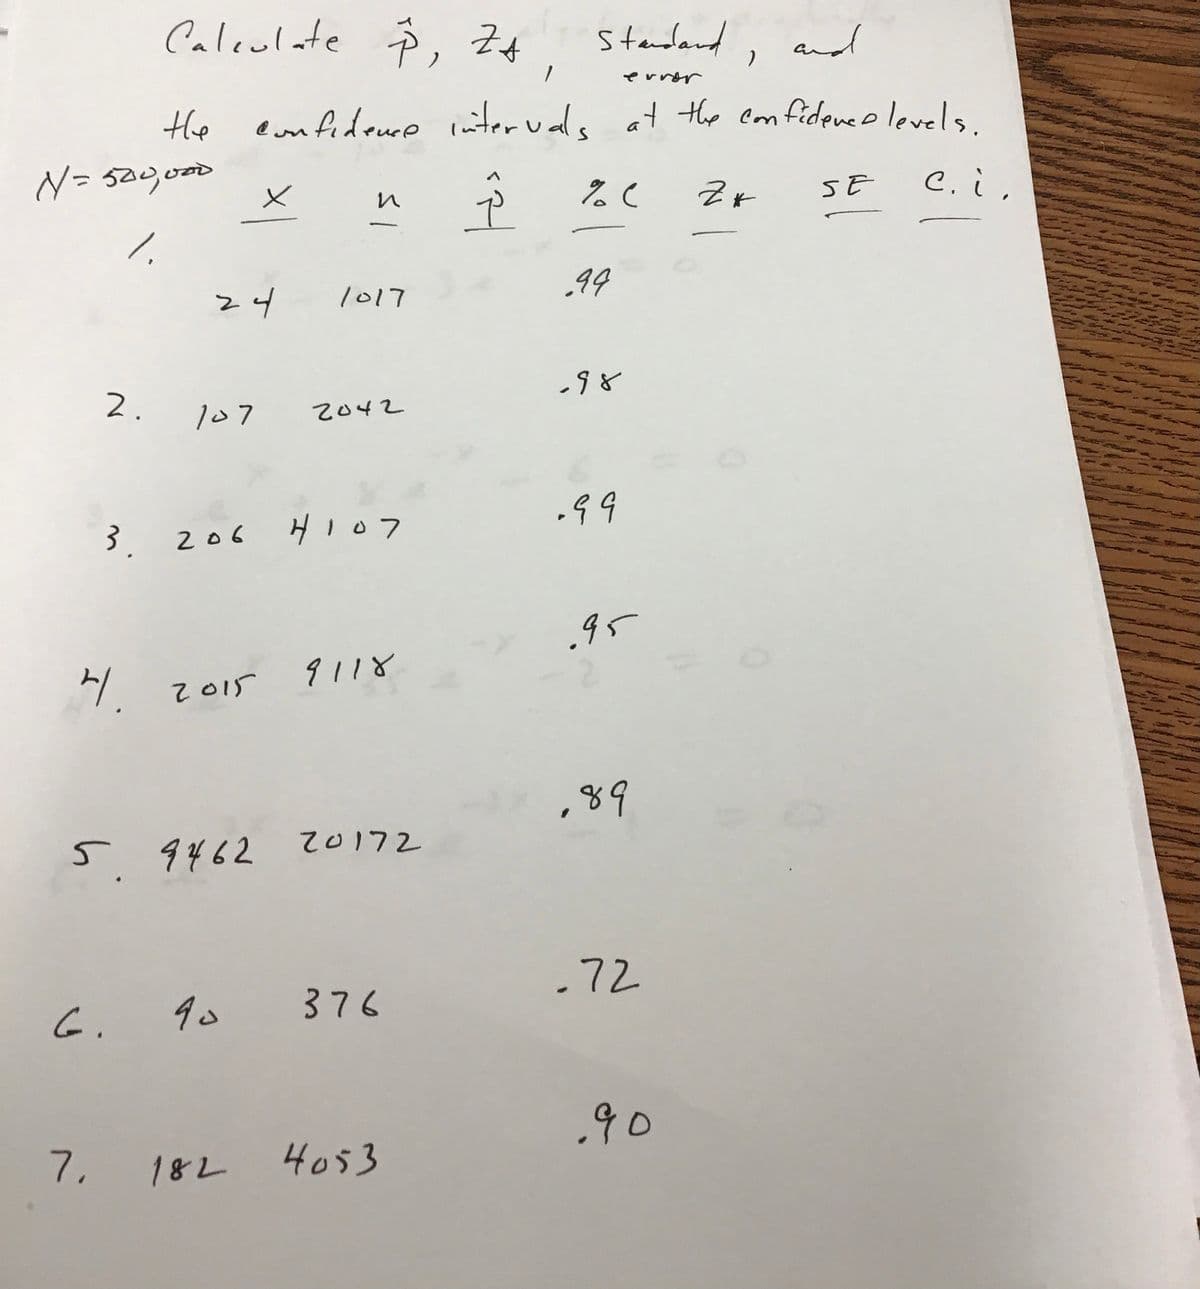 Calculate p̂, Z*, Standard, and
error
the confidence intervals at the confidence levels.
N = 500,000
X n p̂ % C Z* SE C.i.
1.
24 1017 .99
2. 107 2042 .98
3. 206 4107 .99
4. 2015 9118 .95
5. 9462 20172 .89
6. 90 376 .72
7. 182 4053 .90